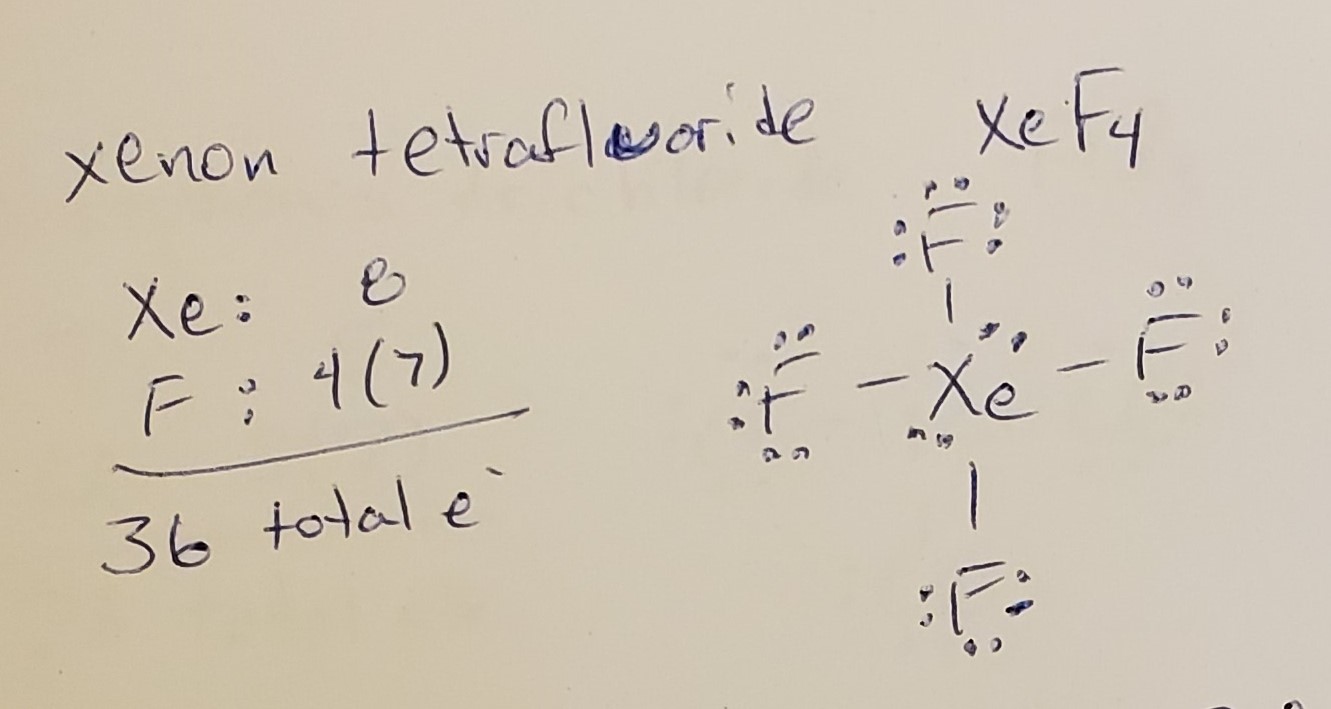 xenon tetrafluoride XeF4
Xe: 8
F: 4(7)
36 total e-
F
F - Xe - F
F